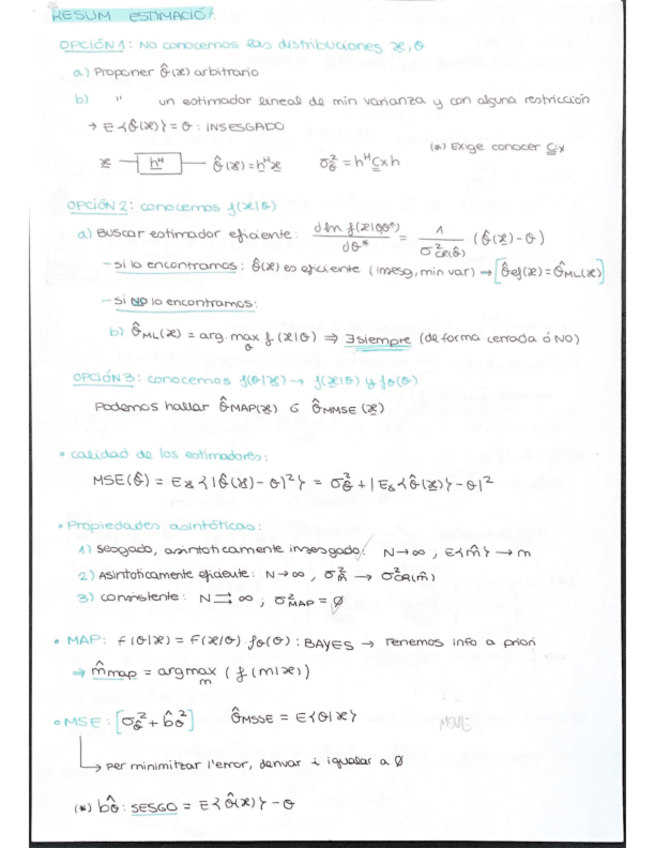 RESUM ESTIMACIÓ:
OPCIÓN 1: NO conocemos las distribuciones x, θ
a) Proponer θ̂(x) arbitrario
b) " un estimador lineal de min varianza y con alguna restricción
→ E{θ̂(x)} = θ : INSESGADO
(*) Exige conocer C̲x
x → hᴴ — θ̂(x) = hᴴx σ²θ̂ = hᴴCxh
OPCIÓN 2: conocemos f(x|θ)
a) Buscar estimador eficiente: d ln f(x|θ,θ*) / dθ* = 1 / σ²CR(θ̂) (θ̂(x) - θ)
- si lo encontramos: θ̂(x) es eficiente (insesg, min var) → [θ̂ef(x) = θ̂ML(x)]
- si NO lo encontramos:
b) θ̂ML(x) = arg. max θ f(x|θ) ⇒ ∃ siempre (de forma cerrada ó NO)
OPCIÓN 3: conocemos f(θ|x) → f(x|θ) y fθ(θ)
Podemos hallar θ̂MAP(x) ó θ̂MMSE(x)
• calidad de los estimadores:
MSE(θ̂) = Ex{|θ̂(x) - θ|²} = σ²θ̂ + |Ex{θ̂(x)} - θ|²
• Propiedades asintóticas:
1) Sesgado, asintoticamente insesgado: N→∞, E{m̂} → m
2) Asintoticamente eficiente: N→∞, σ²m̂ → σ²CR(m̂)
3) consistente: N ⇉ ∞, σ²MAP = ∅
• MAP: f(θ|x) = f(x|θ)·fθ(θ) : BAYES → Tenemos info a priori
⇒ m̂map = argmax m (f(m|x))
• MSE: [σ²θ̂ + b̂θ²] θ̂MSSE = E{θ|x}
per minimitzar l'error, derivar i igualar a ∅
(*) bθ̂: SESGO = E{θ̂(x)} - θ